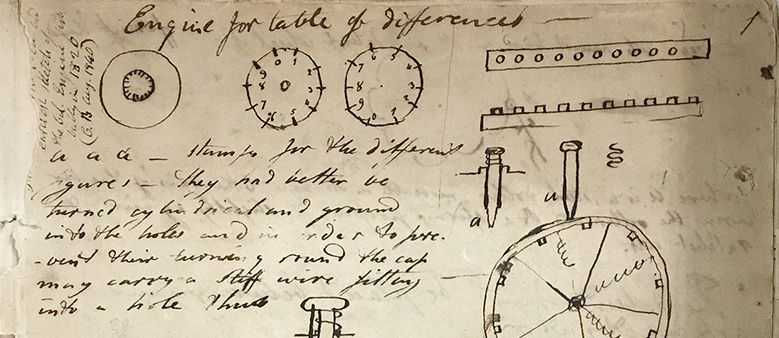 Engine for table of differences
1
9 0 1 2 3 4 5 6 7 8
9 8 7 6 5 4 3 2 1 0
a a a – stamps for the different
figures – They had better be
turned cylindrical and ground
into the holes and in order to pre-
-vent their turning round the cap
may carry a stiff wire fitting
into a hole thus
a
a